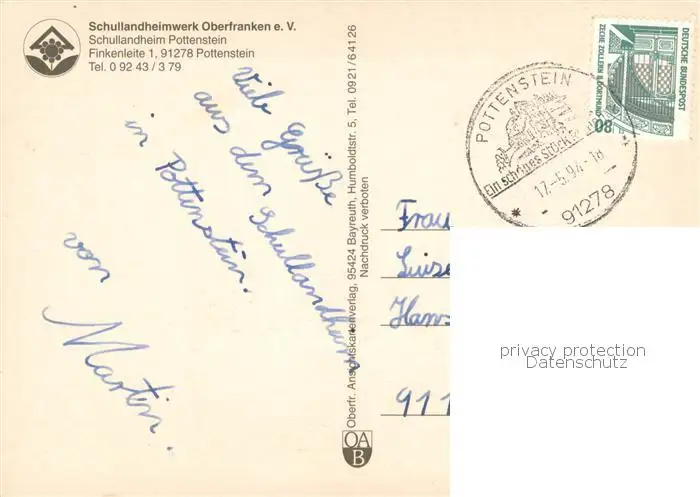 Schullandheimwerk Oberfranken e. V.
Schullandheim Pottenstein
Finkenleite 1, 91278 Pottenstein
Tel. 0 92 43 / 3 79
Viele Grüße
aus dem Schullandheim
in Pottenstein.
von
Martin.
Oberfr. Ansichtskartenverlag, 95424 Bayreuth, Humboldtstr. 5, Tel. 09 21 / 6 41 26
Nachdruck verboten
OA
B
DEUTSCHE BUNDESPOST
ZECHE ZOLLERN II, DORTMUND
80
POTTENSTEIN
Ein schönes Stück
17.-5.94.-18
91278
Frau
Luise
Hans
911
privacy protection
Datenschutz